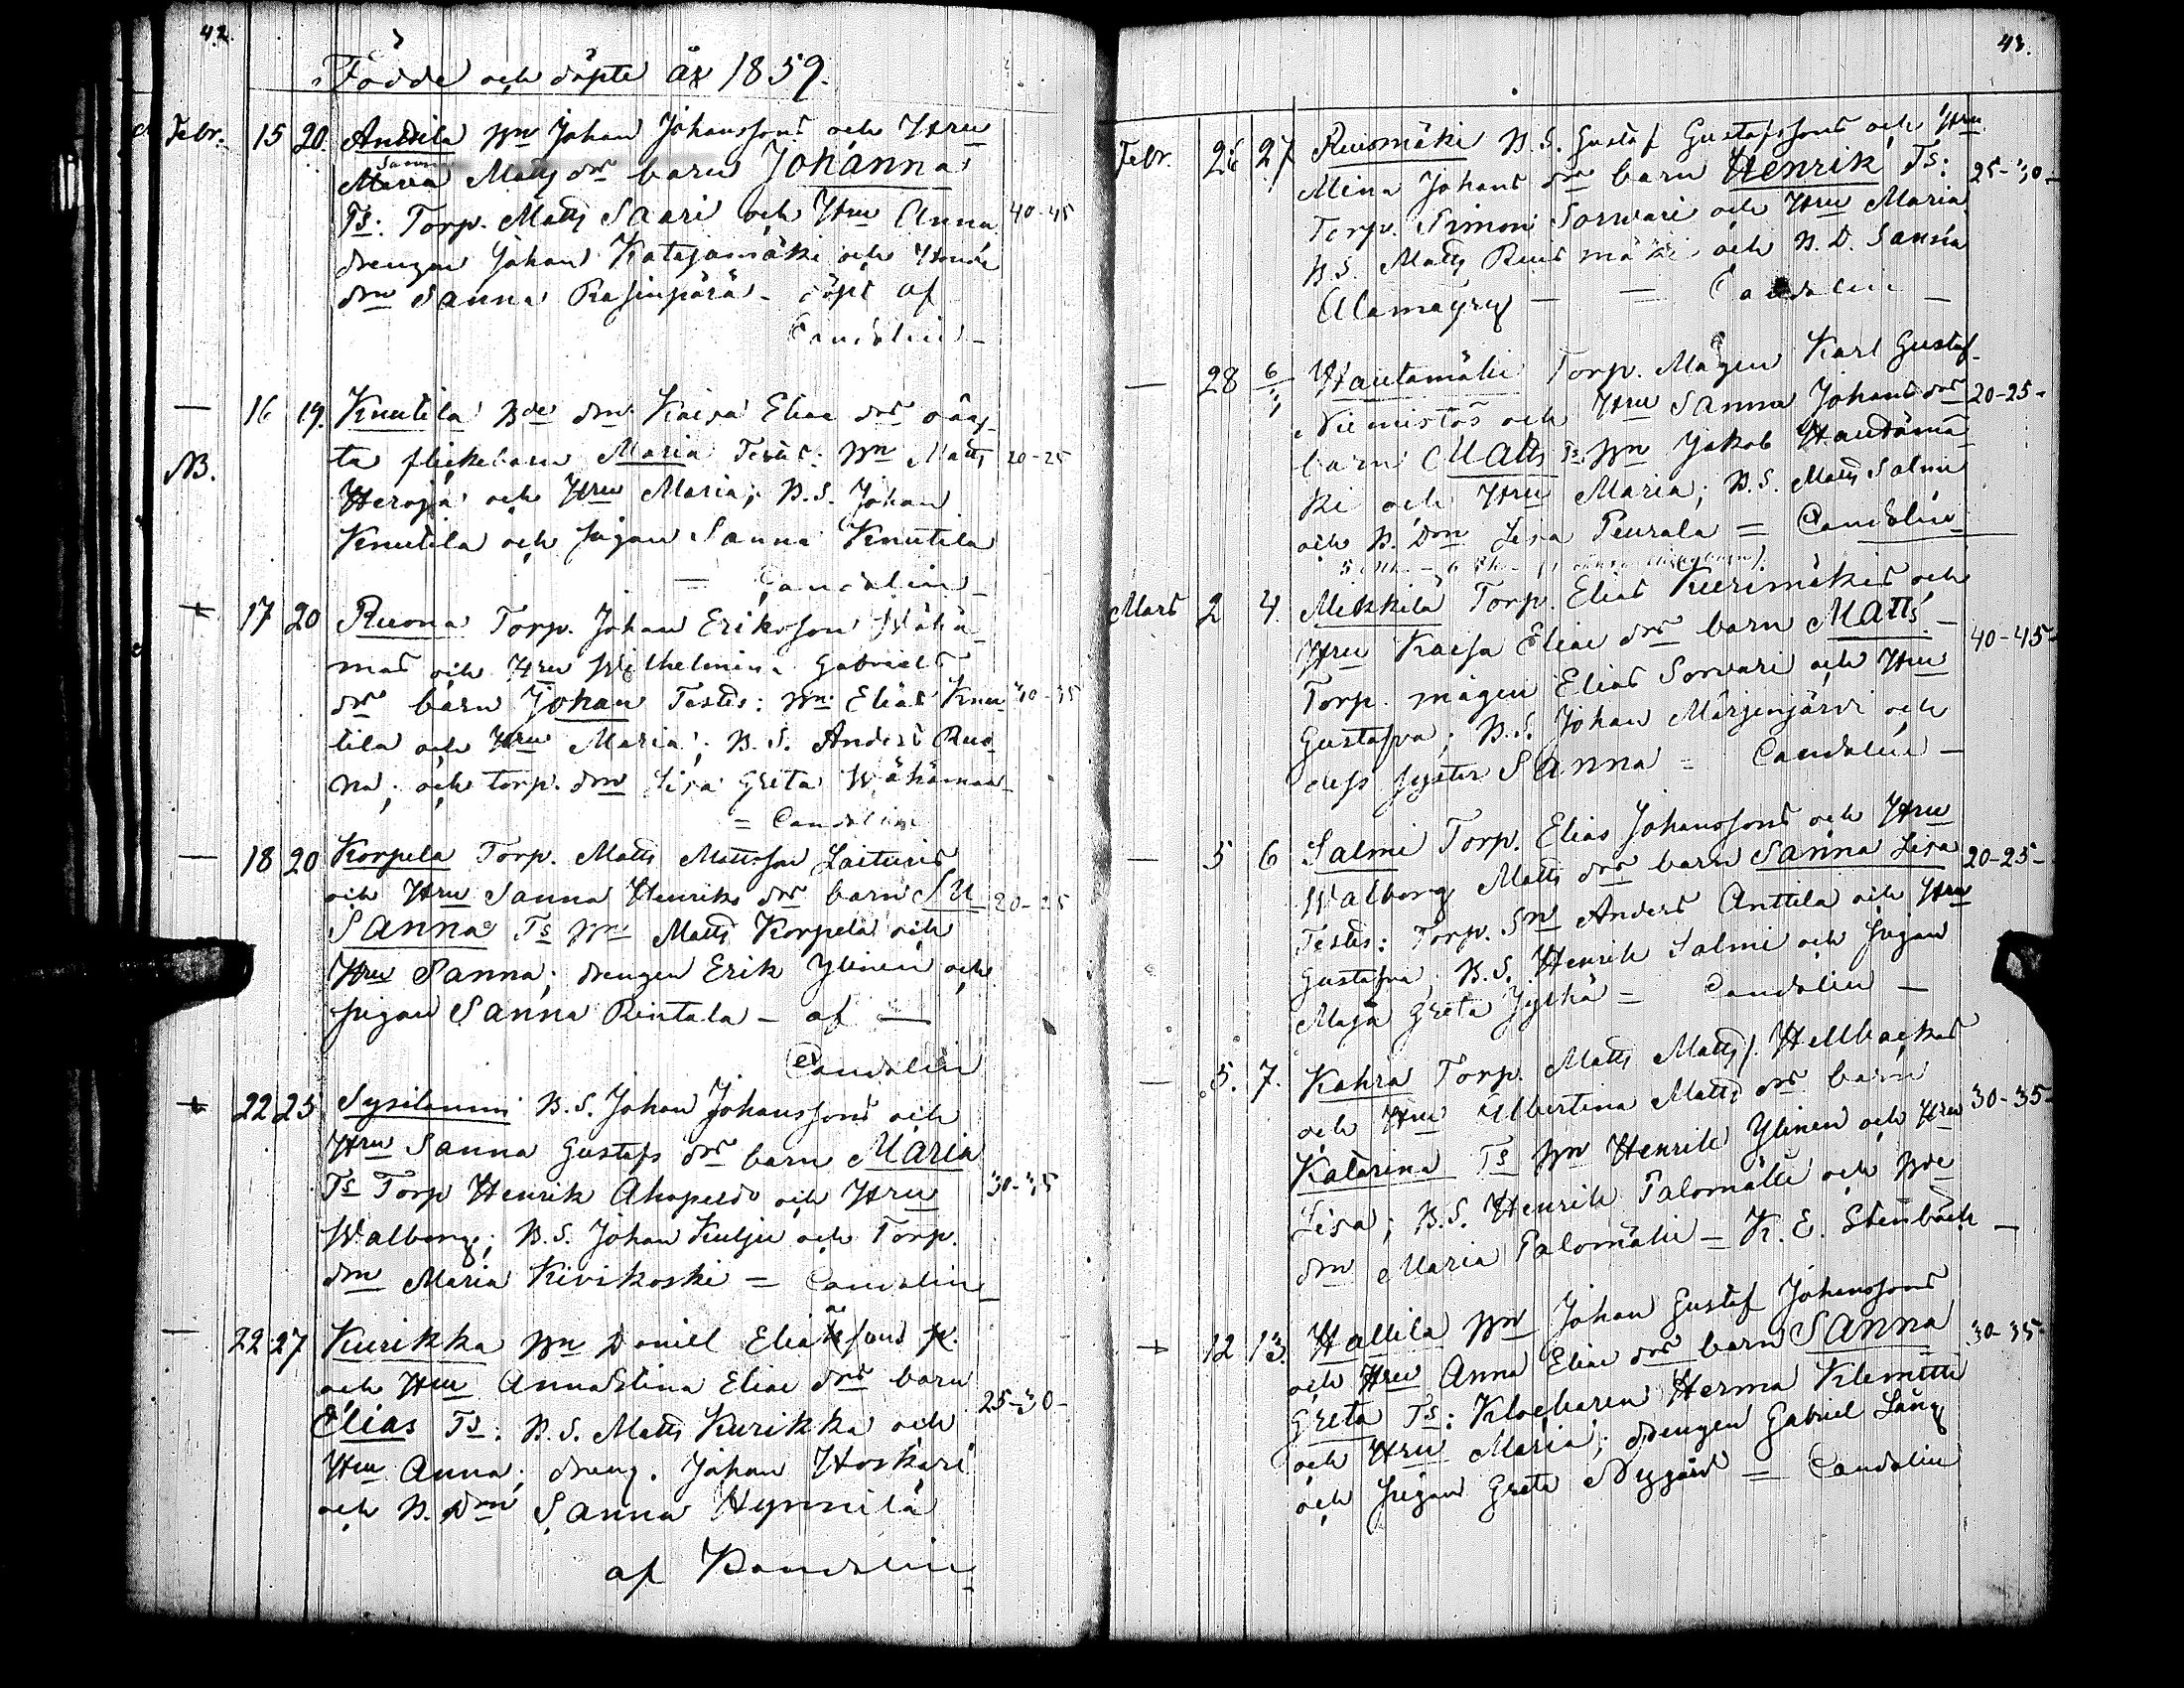 42.
Födde och döpte år 1859.
Febr. 15 20. Anttila Bn Johan Johanssons och Hru
Sanna
Maria Matts dr barn Johanna
Ts: Torp. Matts Saari och Hru Anna 40-45
drengen Johan Katajamäki och
drn Sanna Rasinperä - döpt af
Candolin -
— 16 19. Knuutila Bde drn Kaisa Eliae drs oäg-
NB. ta flickebarn Maria Testes: Bn Matts 20-25
Heroja och Hru Maria; B.S. Johan
Knutila och pigan Sanna Knutila
— Candolin -
17 20 Ruona Torp. Johan Eriksson Wähä-
mas och Hru Wilhelmina Gabriels
dr barn Johan Testes: Bn Elias Knu- 30-35
tila och Hru Maria; B.S. Anders Ruo-
na; och torp. drn Lisa Greta Wähämaa -
= Candolin
— 18 20 Korpela Torp. Matts Mattsson Laituris
och Hru Sanna Henriks dr barn SU 20-25
SANNA Ts Bn Matts Korpela och
Hru Sanna; drengen Erik Ylinen och
pigan Sanna Rintala - af —
Candolin
22 25 Sysilammi B.S. Johan Johanssons och
Hru Sanna Gustafs drs barn Maria
Ts Torp Henrik Ahopelto och Hru 30-35
Walborg; B.S. Johan Kulju och Torp.
drn Maria Kivikoski = Candolin -
— 22 27 Kurikka Bn Daniel Eliaesons
och Hru Anna Stina Eliae drs barn
Elias Ts: B.S. Matts Kurikka och 25-30-
Hru Anna; dreng. Johan Hoskari
och B. Drn Sanna Hynnilä
af Kandolin
43.
Febr. 26 27 Ruismäki B.S. Gustaf Gustafssons och Hru
Mina Johans drs barn Henrik Ts: 25-30-
Torp. Simon Sorvari och Hru Maria
B.S. Matts Ruismäki och B.D. Sanna
— — Candolin —
— 28 6/3 Hautamäki Torp. Mågen Karl Gustaf
Niemistös och Hru Sanna Johans drs 20-25-
barn Matts Ts Bn Jakob Hautamä-
ki och Hru Maria; B.S. Matts Salmi
och B. Drn Lisa Peurala = Candolin -
Mars 2 4. Mikkilä Torp. Elias Kurimäkis och
Hru Kaisa Eliae drs barn Matts - 40-45-
Torp. mågen Elias Sorvari och Hru
Gustafva; B.S. Johan Marjenjärvi och
dess syster Sanna = Candolin -
— 5 6 Salmi Torp. Elias Johanssons och Hru
Walborg Matts drs barn Sanna Lisa 20-25-
Testes: Torp. Sn Anders Anttila och Hru
Gustafva; B.S. Henrik Salmi och pigan
Maja Greta Jylhä = Candolin -
— 5. 7. Kahra Torp. Matts Matts. Hellbackas
och Hru Albertina Matts drs barn
Katarina Ts Bn Henrik Ylinen och Hru 30-35-
Lisa; B.S. Henrik Palomäki och Bde
drn Maria Palomäki = K. E. Stenbäck -
12 13. Hallila Bn Johan Gustaf Johanssons
och Hru Anna Eliae drs barn SANNA 30-35-
Greta Ts: Klockaren Herman Klemetti
och Hru Maria; drengen Gabriel Lång
och pigan Greta Nygård = Candolin